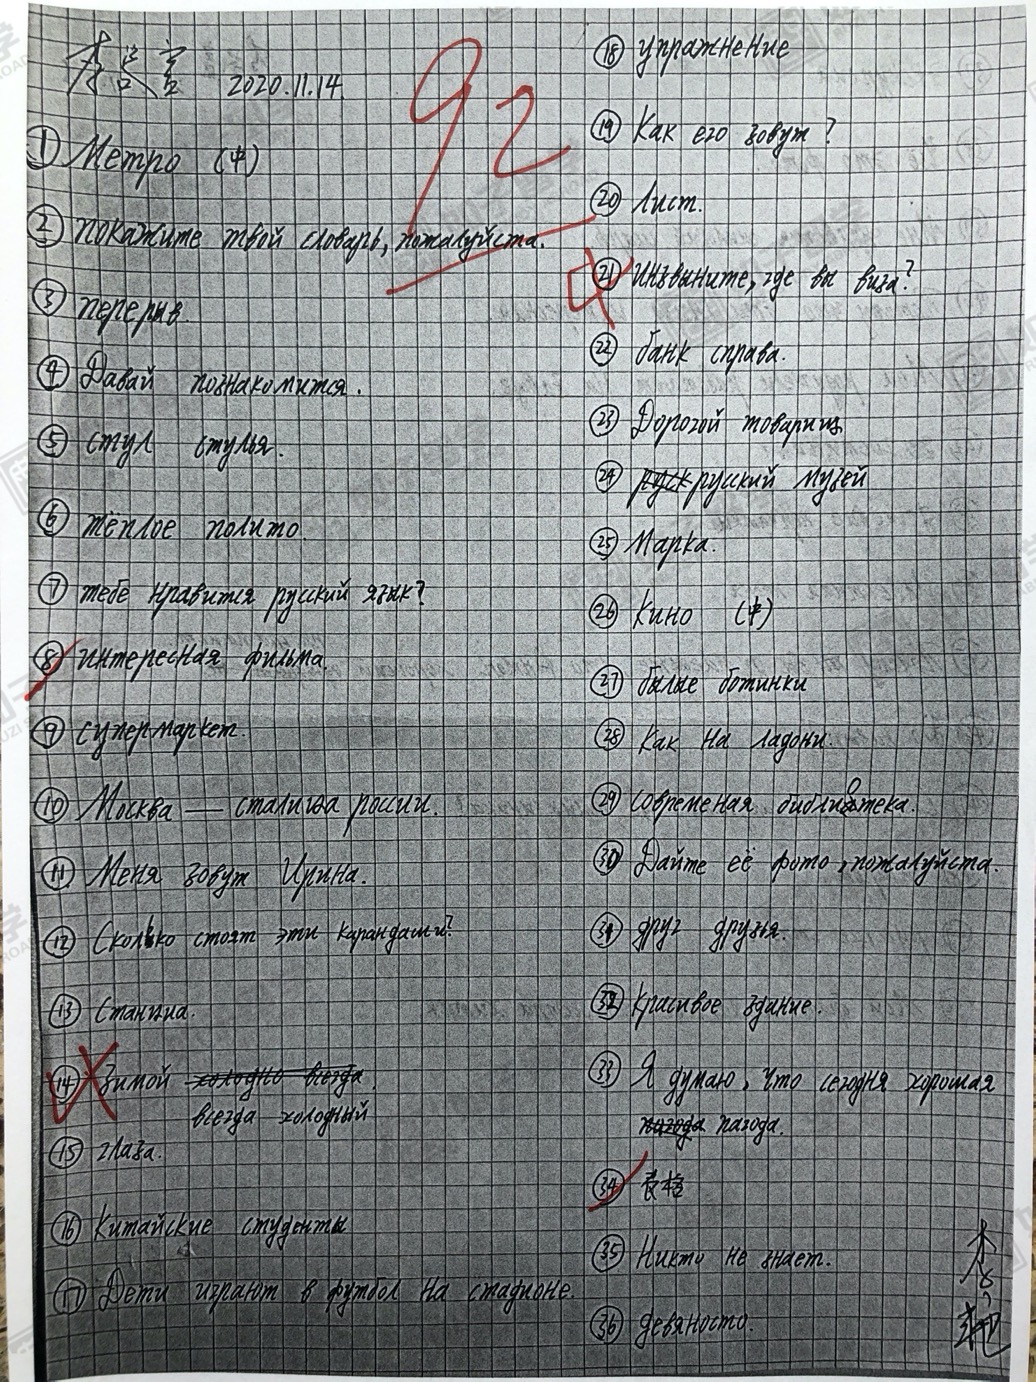 2020.11.14.
92
① Метро (中)
② покажите твой словарь, пожалуйста.
③ перерыв.
④ Давай познакомится.
⑤ стул стулья.
⑥ тёплое полито.
⑦ тебе нравится русский язык?
⑧ интересная фильма.
⑨ супермаркет.
⑩ Москва — сталица россии.
⑪ Меня зовут Ирина.
⑫ Сколько стоят эти карандаши?
⑬ Станция.
⑭ Зимой холодно всегда
всегда холодный
⑮ глаза.
⑯ Китайские студенты
⑰ Дети играют в футбол на стадионе.
⑱ упражнение
⑲ Как его зовут?
⑳ Лист.
㉑ Инзвините, где вы виза?
㉒ банк справа.
㉓ Дорогой товарищ
㉔ руск русский музей
㉕ Марка.
㉖ Кино (中)
㉗ былые ботинки
㉘ Как на ладони.
㉙ современая библиотека.
㉚ Дайте её фото, пожалуйста.
㉛ друг друзья.
㉜ красивое здание.
㉝ Я думаю, что сегодня хорошая
пагода пагода.
㉞ 表格
㉟ Никто не знает.
㊱ девяносто.